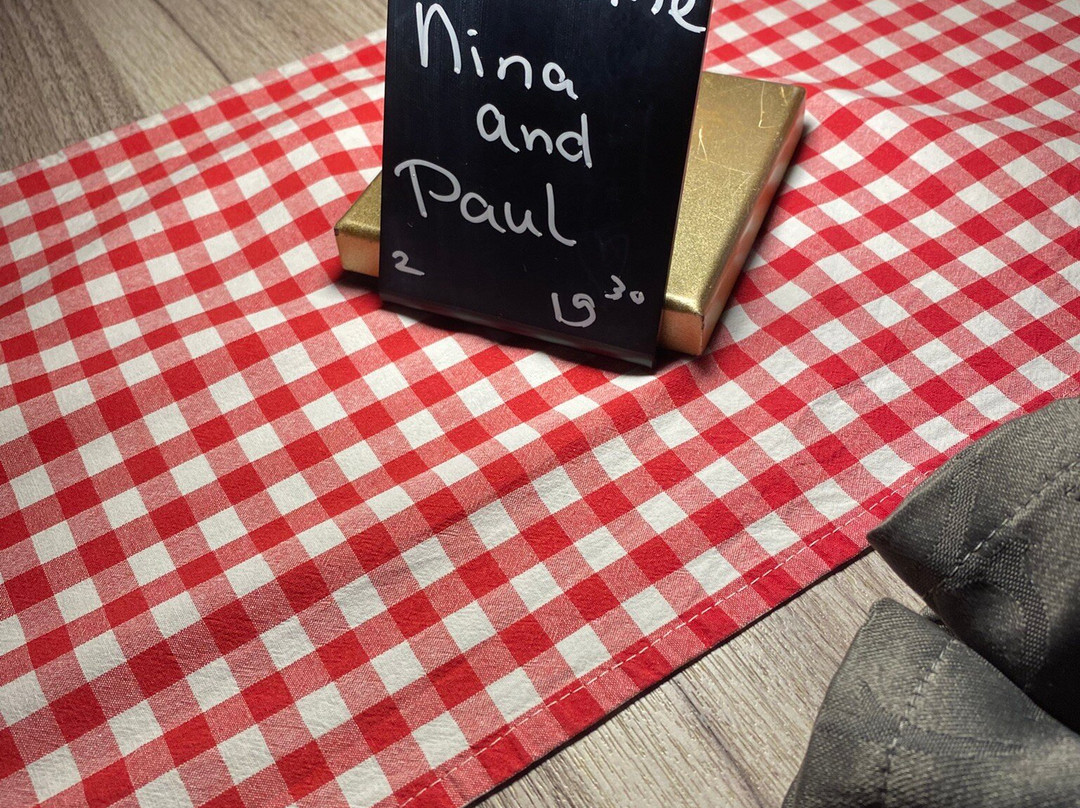 Nina
and
Paul
2
19 30